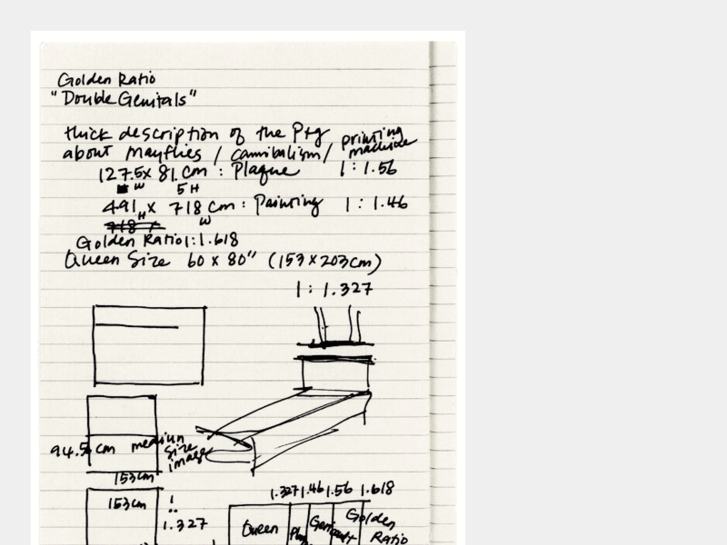 Golden Ratio
"Double Genitals"
thick description of the Ptg
about Mayflies / Cannibalism / printing machine
127.5 x 81 cm : Plaque 1 : 1.56
W 5 H
491 x 718 cm : Painting 1 : 1.46
H W
718
Golden Ratio 1:1.618
Queen Size 60 x 80" (153 x 203 cm)
1 : 1.327
94.5 cm medium
size
image
153 cm
153 cm
1.327
1.327 1.46 1.56 1.618
Queen Golden
Ratio